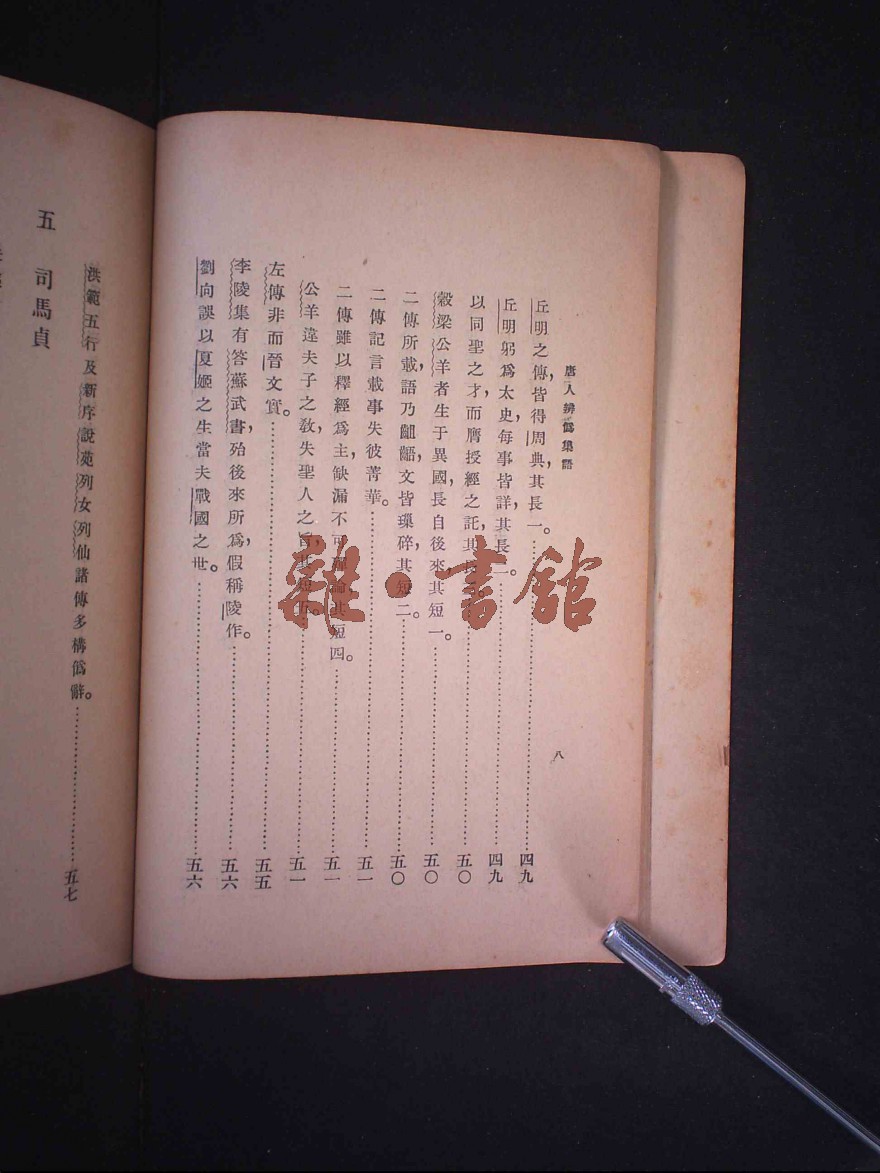 唐人辨僞集語
八
丘明之傳，皆得周典，其長一。……四九
丘明躬爲太史，每事皆詳，其長二。……四九
以同聖之才，而膺授經之託，其長……五〇
穀梁公羊者生于異國，長自後來，其短一。……五〇
二傳所載，語乃齟齬，文皆璅碎，其短二。……五〇
二傳記言載事，失彼菁華。……五一
二傳雖以釋經爲主，缺漏不可殫論，其短四。……五一
公羊違夫子之敎，失聖人之旨，其短五。……五一
左傳非而晉文實。……五五
李陵集有答蘇武書，殆後來所爲，假稱陵作。……五六
劉向誤以夏姬之生當夫戰國之世。……五六
洪範五行及新序說苑列女列仙諸傳多構僞辭。……五七
五 司馬貞
雜·書館